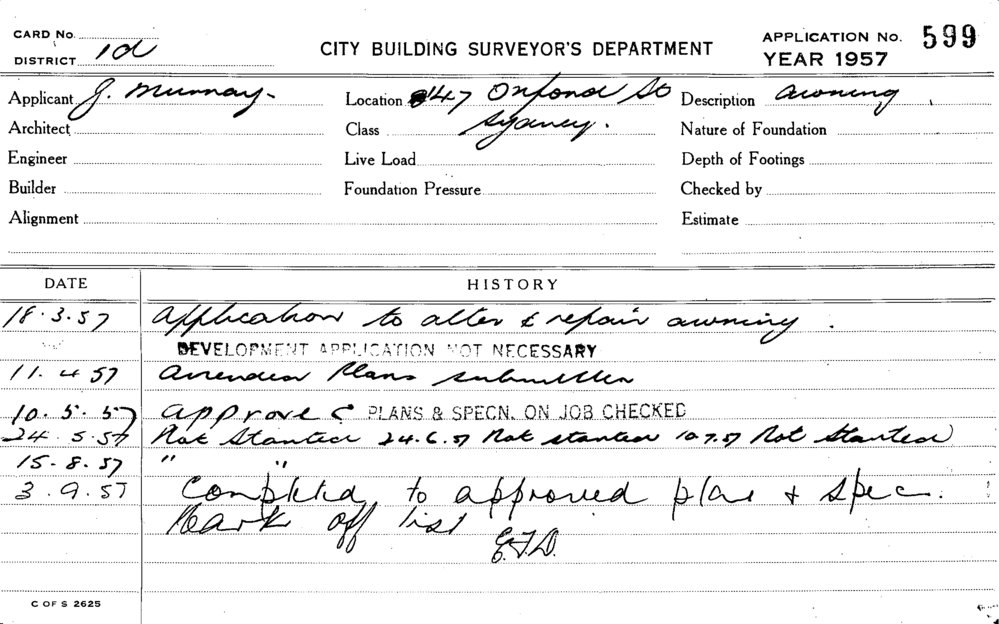 CARD No.
DISTRICT 1d
CITY BUILDING SURVEYOR'S DEPARTMENT
APPLICATION No. 599
YEAR 1957
Applicant J. Murray.
Location 47 Oxford St
Sydney.
Description awning
Architect
Class
Nature of Foundation
Engineer
Live Load
Depth of Footings
Builder
Foundation Pressure
Checked by
Alignment
Estimate
DATE HISTORY
18.3.57 Application to alter & repair awning.
DEVELOPMENT APPLICATION NOT NECESSARY
11.4 57 Amended Plans submitted
10.5.57 approved PLANS & SPECN. ON JOB CHECKED
24.5.57 Not Started 24.6.57 Not started 10.7.57 Not Started
15.8.57 " "
3.9.57 Completed to approved plan & spec.
Mark off list
C OF S 2625